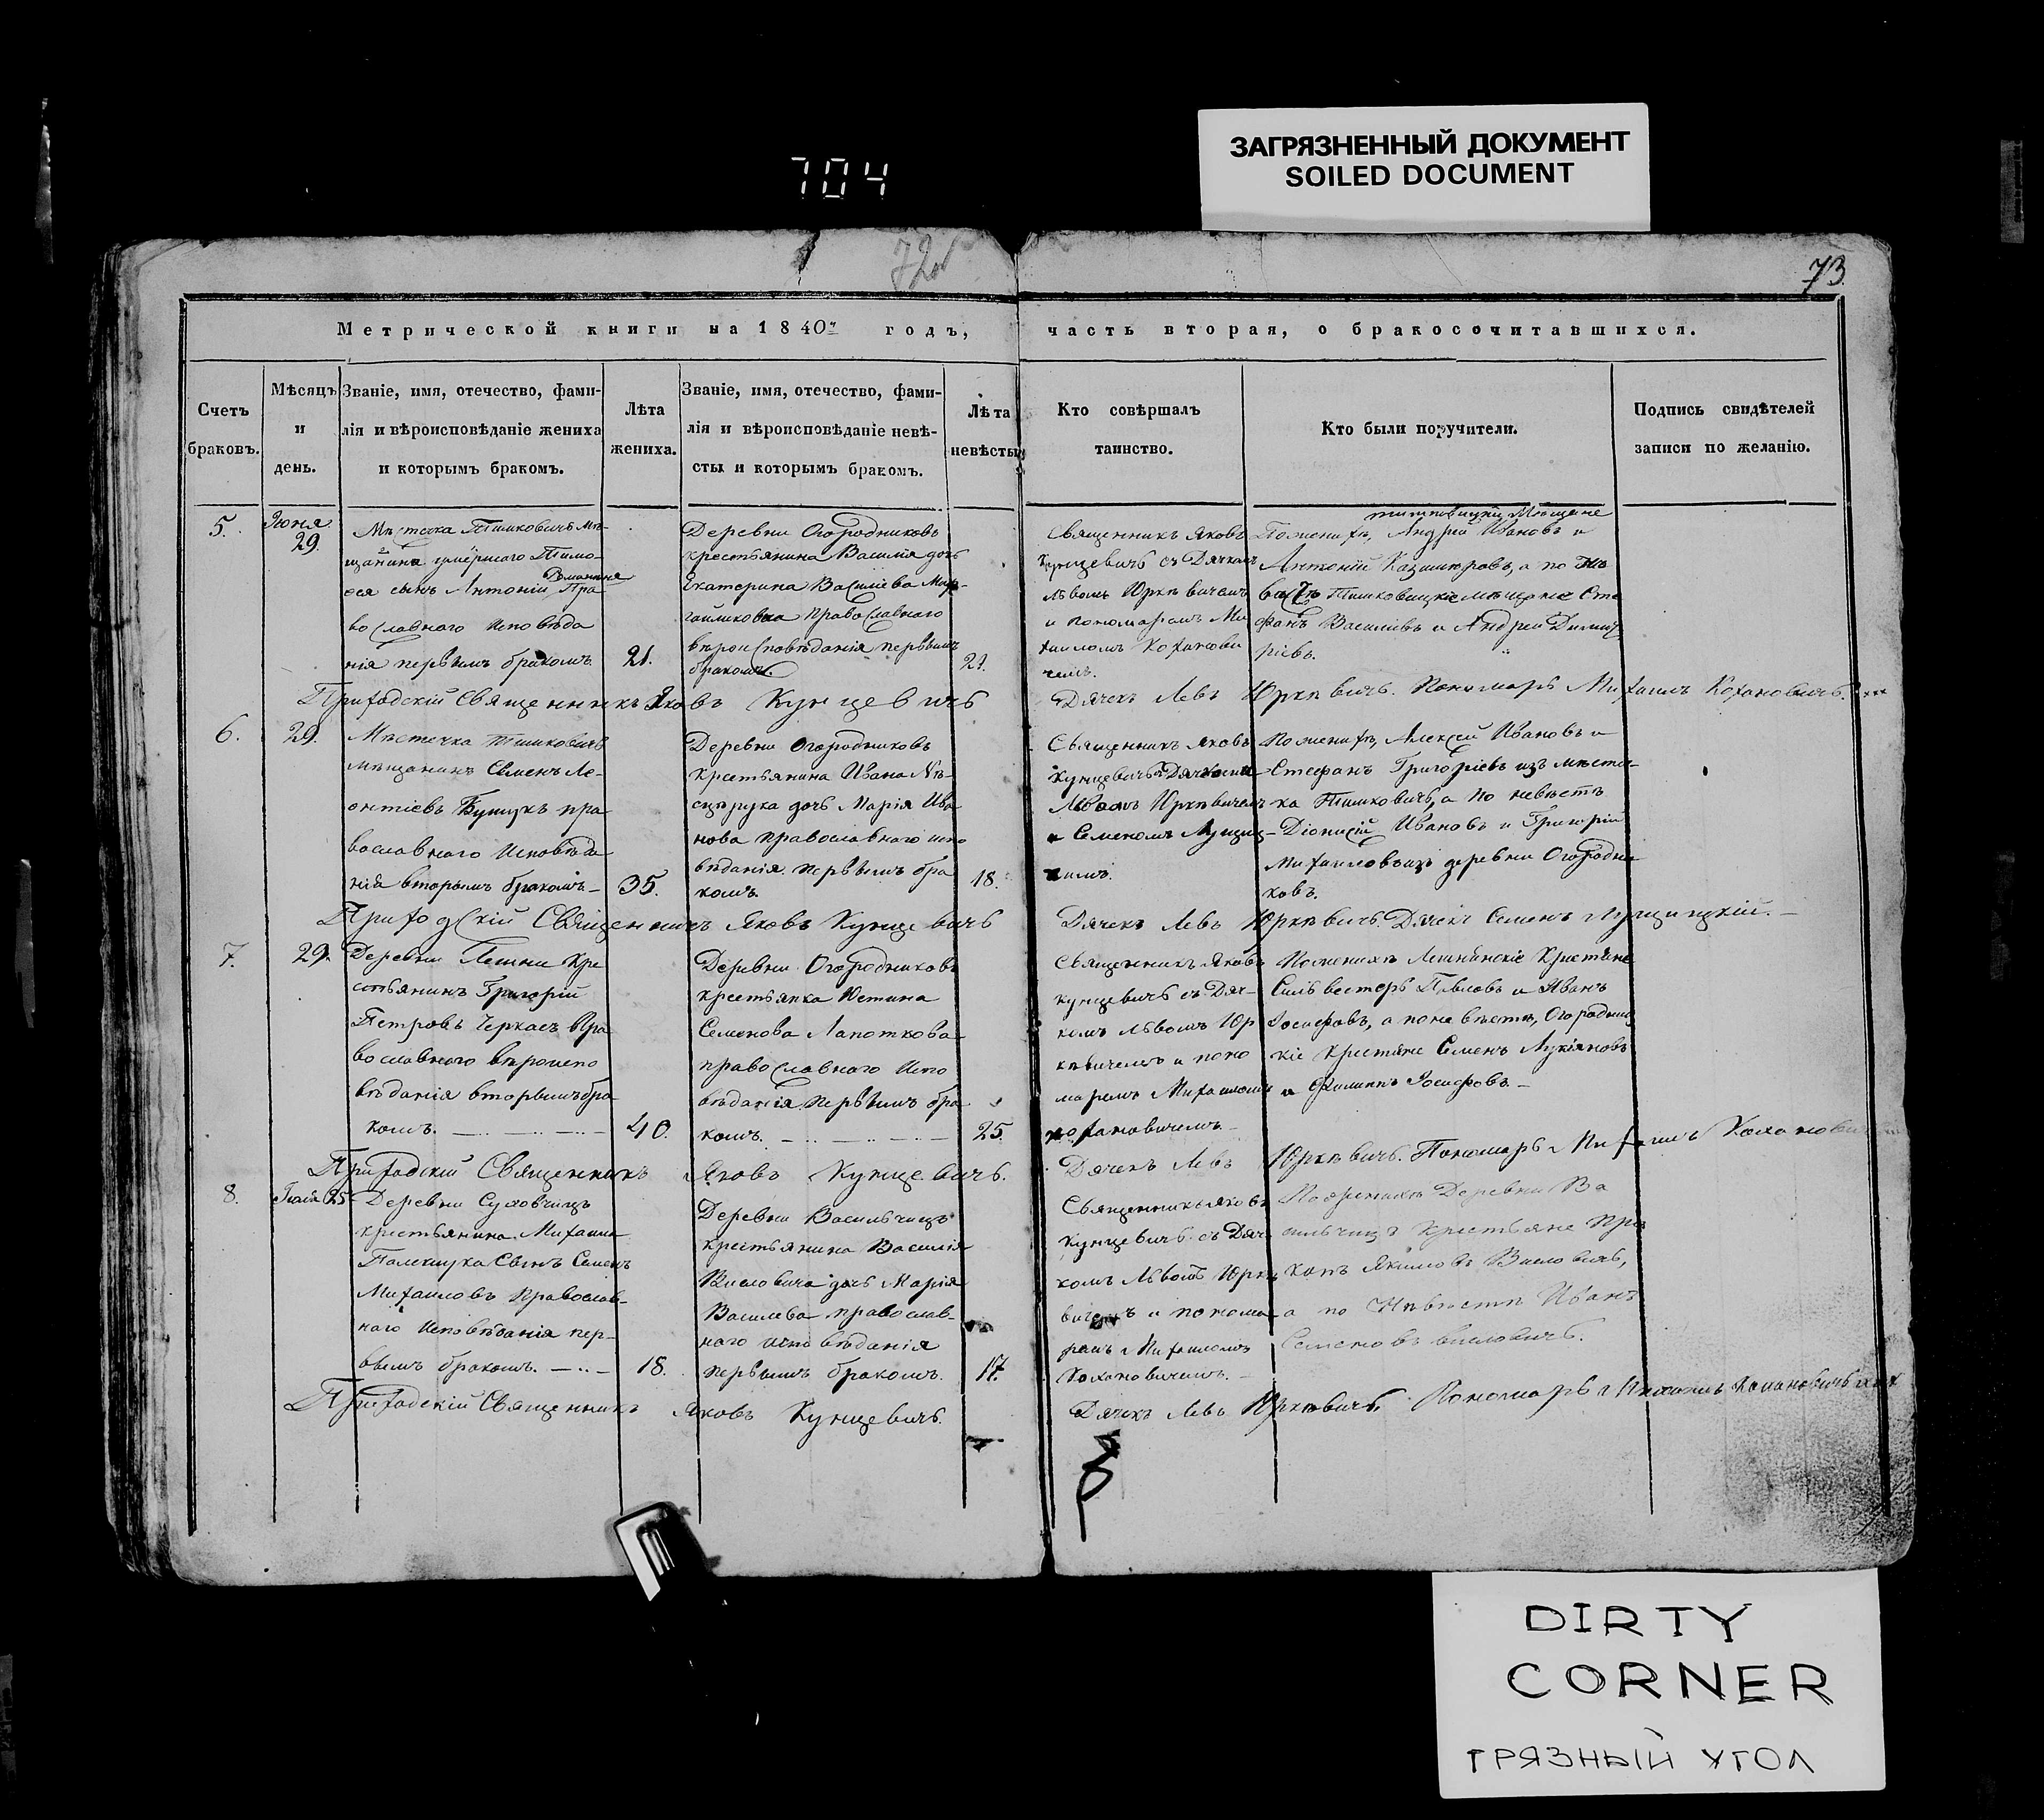 ЗАГРЯЗНЕННЫЙ ДОКУМЕНТ
SOILED DOCUMENT
704
73
Метрической книги на 1840й годъ, часть вторая, о бракосочитавшихся.
Счетъ
браковъ.
Мѣсяцъ
и
день.
Званіе, имя, отечество, фами-
лія и вѣроисповѣданіе жениха
и которымъ бракомъ.
Лѣта
жениха.
Званіе, имя, отечество, фами-
лія и вѣроисповѣданіе невѣ-
сты и которымъ бракомъ.
Лѣта
невѣсты.
Кто совѣршалъ
таинство.
Кто были поручители.
Подпись свидѣтелей
записи по желанію.
5.
Іюня
29.
Мѣстечка Тишковичъ мѣ-
щанина умёршаго Тимо-
ѳея сынъ Антоній Пра
вославнаго исповѣда
нія первымъ бракомъ
21.
Деревни Огородниковъ
крестьянина Василія дочь
Екатерина Васильева
православнаго
вѣроисповѣданія первымъ
бракомъ
21.
Священникъ Яковъ
Кунцевичъ съ Дячкомъ
Львомъ Юркѣвичемъ
и пономаремъ Ми
хаиломъ Кохнови
чемъ.
Поженихѣ, Андрей Ивановъ и
Антоній Казимировъ, а по не
вѣстѣ Тишковицкіе мѣщане Сте
фанъ Василіевъ и Андрей Димит
ріевъ.
Приходскій Священникъ Яковъ Кунцевичъ
Дячекъ Левъ Юркѣвичъ. Пономарь Михаилъ Кохановичъ.
6.
29.
Мѣстечка Тишковичъ
мѣщанинъ Семенъ Ле-
онтіевъ пра
вославнаго исповѣда
нія вторымъ бракомъ
35.
Деревни Огородниковъ
крестьянина Ивана
дочь Марія Ива
нова православнаго испо
вѣданія первымъ бра
комъ.
18.
Священникъ Яковъ
Кунцевичъ Дячкомъ
Львомъ Юркѣвичемъ
и Семеномъ
Поженихѣ, Алексѣй Ивановъ и
Стефанъ Григоріевъ изъ мѣсте
чка Тишковичъ, а по невѣстѣ
Діонисій Ивановъ и Григорій
Михаиловъ изъ деревни Огородни
ковъ.
Приходскій Священникъ Яковъ Кунцевичъ
Дячекъ Левъ Юркѣвичъ. Дячекъ Семенъ
7.
29.
Деревни Лешни кре
стьянинъ Григорій
Петровъ Черкасъ пра
вославнаго вѣроиспо
вѣданія вторымъ бра
комъ.
40.
Деревни Огородниковъ
крестьянка Юстина
Семенова Лапоткова
православнаго испо
вѣданія первымъ бра
комъ.
25.
Священникъ Яковъ
Кунцевичъ съ Дяч-
комъ Львомъ Юр
кѣвичемъ и поно
маремъ Михаиломъ
Кохановичемъ
Поженихѣ Лешнинскіе крестяне
Сильвестеръ Павловъ и Иванъ
Іосифовъ, а по невѣстѣ, Огородниц
кіе крестяне Семенъ Лукіяновъ
и Филиппъ Іосифовъ.
Приходскій Священникъ Яковъ Кунцевичъ.
Дячекъ Левъ Юркѣвичъ. Пономарь Михаилъ Кохановичъ
8.
25
Деревни Суховчицъ
крестьянина Михаила
Палешука сынъ Семенъ
Михаиловъ православ-
наго исповѣданія пер-
вымъ бракомъ.
18.
Деревни Васильчицъ
крестьянина Василія
Висловича дочь Марія
Василева православ-
наго исповѣданія
первымъ бракомъ.
17.
Священникъ Яковъ
Кунцевичъ съ Дяч
комъ Львомъ Юркѣ
вичемъ и понома
ремъ Михаиломъ
Кохановичемъ.
Поженихѣ Деревни Ва
сильчицъ крестьяне Про
копъ Якимовъ Висловичъ,
а по невѣстѣ Иванъ
Семеновъ Висловичъ.
Приходскій Священникъ Яковъ Кунцевичъ.
Дячекъ Левъ Юркѣвичъ. Пономарь Михаилъ Кохановичъ
DIRTY
CORNER
ГРЯЗНЫЙ УГОЛ